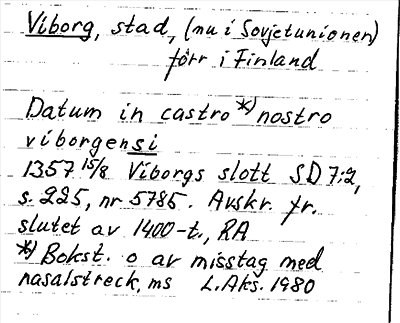 Viborg, stad, (nu i Sovjetunionen)
förr i Finland
Datum in castro *) nostro
viborgensi
1357 15/8 Viborgs slott SD 7:2,
s. 225, nr 5785. Avskr. fr.
slutet av 1400-t., RA
*) Bokst. o av misstag med
nasalstreck, ms L. Aks. 1980